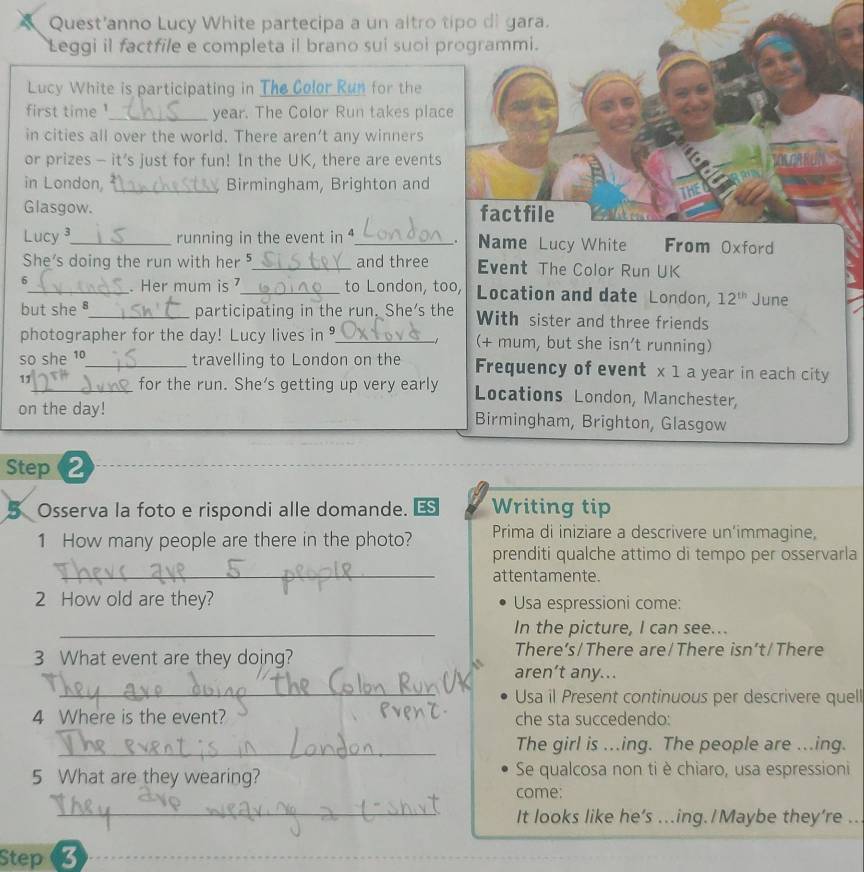 4 Quest'anno Lucy White partecipa a un altro tipo di gara.
Leggi il factfile e completa il brano sui suoi programmi.
Lucy White is participating in The Color Run for the
first time ¹ this year. The Color Run takes place
in cities all over the world. There aren't any winners
or prizes – it's just for fun! In the UK, there are events
in London, ² Manchester, Birmingham, Brighton and
Glasgow.
Lucy ³ is running in the event in ⁴ London.
She's doing the run with her ⁵ sister and three
⁶ friends. Her mum is ⁷ going to London, too,
but she ⁸ isn't participating in the run. She's the
photographer for the day! Lucy lives in ⁹ Oxford,
so she ¹⁰ is travelling to London on the
¹¹ 12TH June for the run. She's getting up very early
on the day!
THE
COLOR RUN
factfile
Name Lucy White From Oxford
Event The Color Run UK
Location and date London, 12th June
With sister and three friends
(+ mum, but she isn't running)
Frequency of event x 1 a year in each city
Locations London, Manchester,
Birmingham, Brighton, Glasgow
Step 2
5 Osserva la foto e rispondi alle domande. ES
1 How many people are there in the photo?
There are 5 people.
2 How old are they?
3 What event are they doing?
They are doing "the Colon Run UK" event.
4 Where is the event?
The event is in London.
5 What are they wearing?
They are wearing a t-shirt
Writing tip
Prima di iniziare a descrivere un'immagine,
prenditi qualche attimo di tempo per osservarla
attentamente.
• Usa espressioni come:
In the picture, I can see...
There's/There are/There isn't/There
aren't any...
• Usa il Present continuous per descrivere quell
che sta succedendo:
The girl is ...ing. The people are ...ing.
• Se qualcosa non ti è chiaro, usa espressioni
come:
It looks like he's ...ing./Maybe they're ...
Step 3